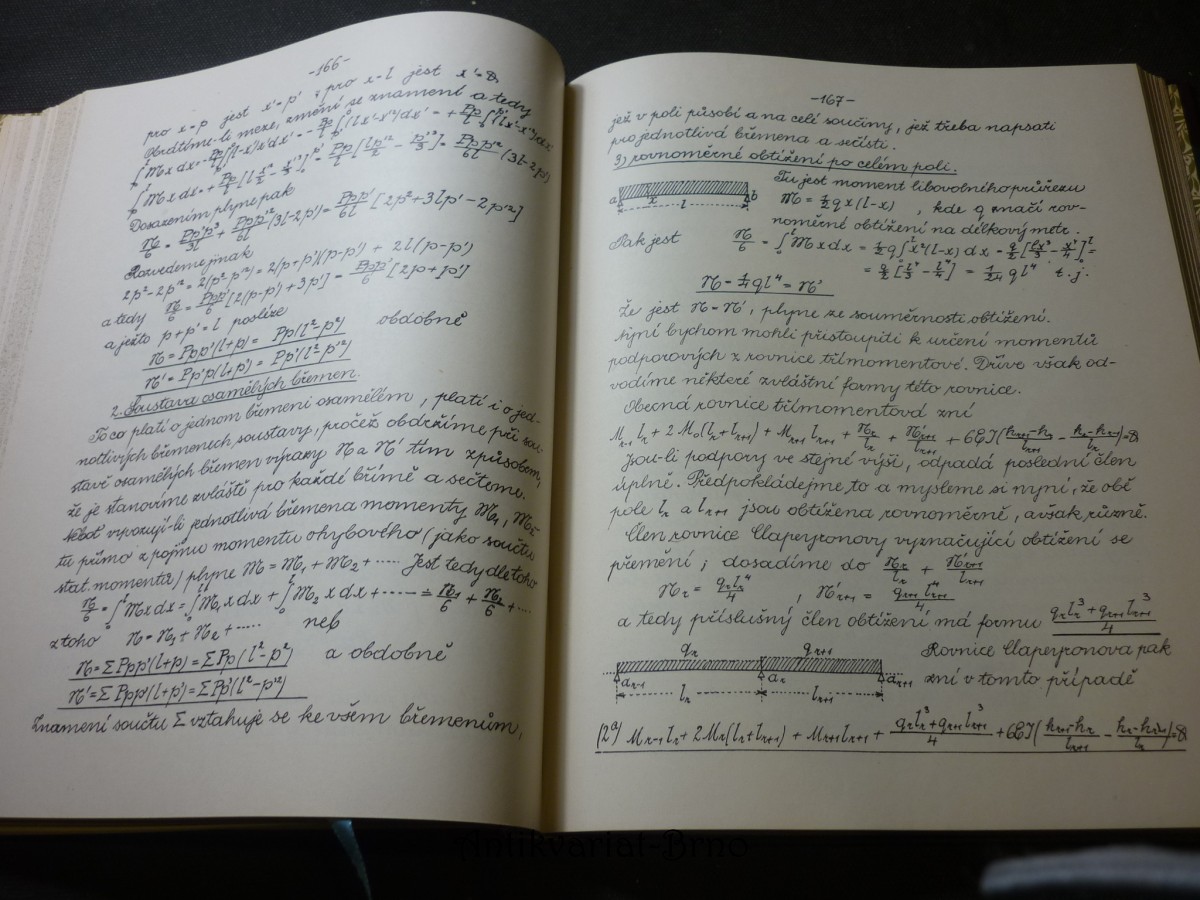 -166-
pro x=p jest x'=p' i pro x=l jest x'=0.
Obrátíme-li meze, změní se znamení a tedy
Dosazením plyne pak
Rozvedeme jinak
2p²-2p'² = 2(p²-p'²) = 2(p+p')(p-p') = 2l(p-p')
a tedy 𝔑/6 = Ppp'/6 [2(p-p')+3p'] = Ppp'/6 [2p+p']
a ježto p+p'=l posléze
𝔑 = Ppp'(l+p) = Pp(l²-p²) obdobně
𝔑' = Pp'p(l+p') = Pp'(l²-p'²)
2. Soustava osamělých břemen.
To co platí o jednom břemeni osamělém, platí i o jed-
notlivých břemenech soustavy, pročež obdržíme při sou-
stavě osamělých břemen výrazy 𝔑 a 𝔑' tím způsobem,
že je stanovíme zvláště pro každé břímě a sečteme.
Neboť vyvozují-li jednotlivá břemena momenty M₁, M₂
tu přímo z pojmu momentu ohybového (jako součtu
stat. momentů) plyne M = M₁ + M₂ + ..... Jest tedy dle toho
𝔑/6 = ∫₀ˡ Mx dx = ∫₀ˡ M₁x dx + ∫₀ˡ M₂x dx + ...... = 𝔑₁/6 + 𝔑₂/6 + ....
z toho 𝔑 = 𝔑₁ + 𝔑₂ + ..... neb
𝔑 = ΣPpp'(l+p) = ΣPp(l²-p²) a obdobně
𝔑' = ΣPpp'(l+p') = ΣPp'(l²-p'²)
Znamení součtu Σ vztahuje se ke všem břemenům,
-167-
jež v poli působí a na celé součiny, jež třeba napsati
pro jednotlivá břemena a sečísti.
3) rovnoměrné obtížení po celém poli.
a x l b
Tu jest moment libovolného průřezu
M = ½ q x (l-x) , kde q značí rov-
noměrné obtížení na délkový metr.
Pak jest 𝔑/6 = ∫₀ˡ Mx dx = ½q∫₀ˡ x²(l-x) dx = q/2 [lx³/3 - x⁴/4]₀ˡ =
= q/2 [l⁴/3 - l⁴/4] = 1/24 q l⁴ t.j.
𝔑 = ¼ql⁴ = 𝔑'
Že jest 𝔑 = 𝔑', plyne ze souměrnosti obtížení.
Nyní bychom mohli přistoupiti k určení momentů
podporových z rovnice třímomentové. Dříve však od-
vodíme některé zvláštní formy této rovnice.
Obecná rovnice třímomentová zní
Jsou-li podpory ve stejné výši, odpadá poslední člen
úplně. Předpokládejme to a mysleme si nyní, že obě
pole lᵣ a lᵣ₊₁ jsou obtížena rovnoměrně, avšak různě.
Člen rovnice Clapeyronovy vyznačující obtížení se
přemění; dosadíme do 𝔑ᵣ/lᵣ + 𝔑'ᵣ₊₁/lᵣ₊₁
𝔑ᵣ = qᵣlᵣ⁴/4 , 𝔑'ᵣ₊₁ = qᵣ₊₁lᵣ₊₁⁴/4
a tedy příslušný člen obtížení má formu (qᵣlᵣ³ + qᵣ₊₁lᵣ₊₁³)/4
qᵣ qᵣ₊₁
aᵣ₋₁ aᵣ aᵣ₊₁
lᵣ lᵣ₊₁
Rovnice Clapeyronova pak
zní v tomto případě
(2ᵃ) Mᵣ₋₁lᵣ + 2Mᵣ(lᵣ+lᵣ₊₁) + Mᵣ₊₁lᵣ₊₁ + (qᵣlᵣ³+qᵣ₊₁lᵣ₊₁³)/4
Antikvariat-Brno